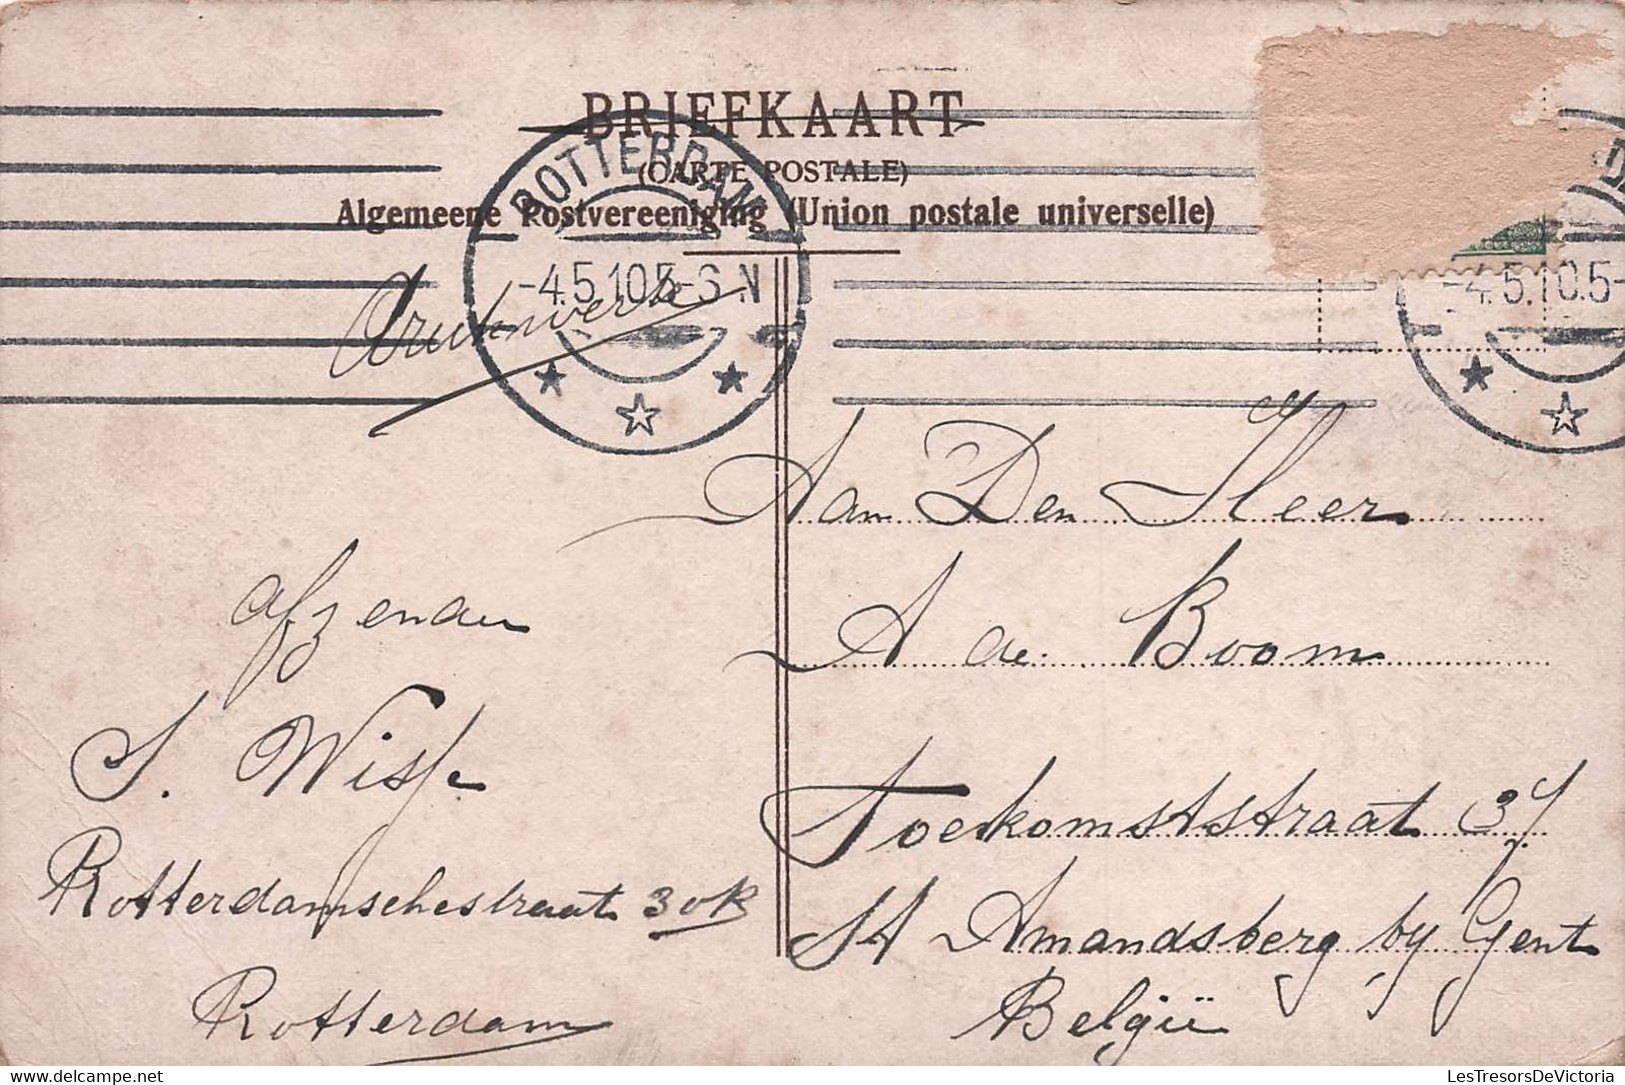 BRIEFKAART
(CARTE POSTALE)
Algemeene Postvereeniging (Union postale universelle)
ROTTERDAM
-4.5.10.5-6 N
-4.5.10.5-
Drukwerk
Aan Den Heer
A de Boom
Toekomststraat 37
St Amandsberg by Gent
België
afzender
J. Wisse
Rotterdamschestraat 30B
Rotterdam
LesTresorsDeVictoria